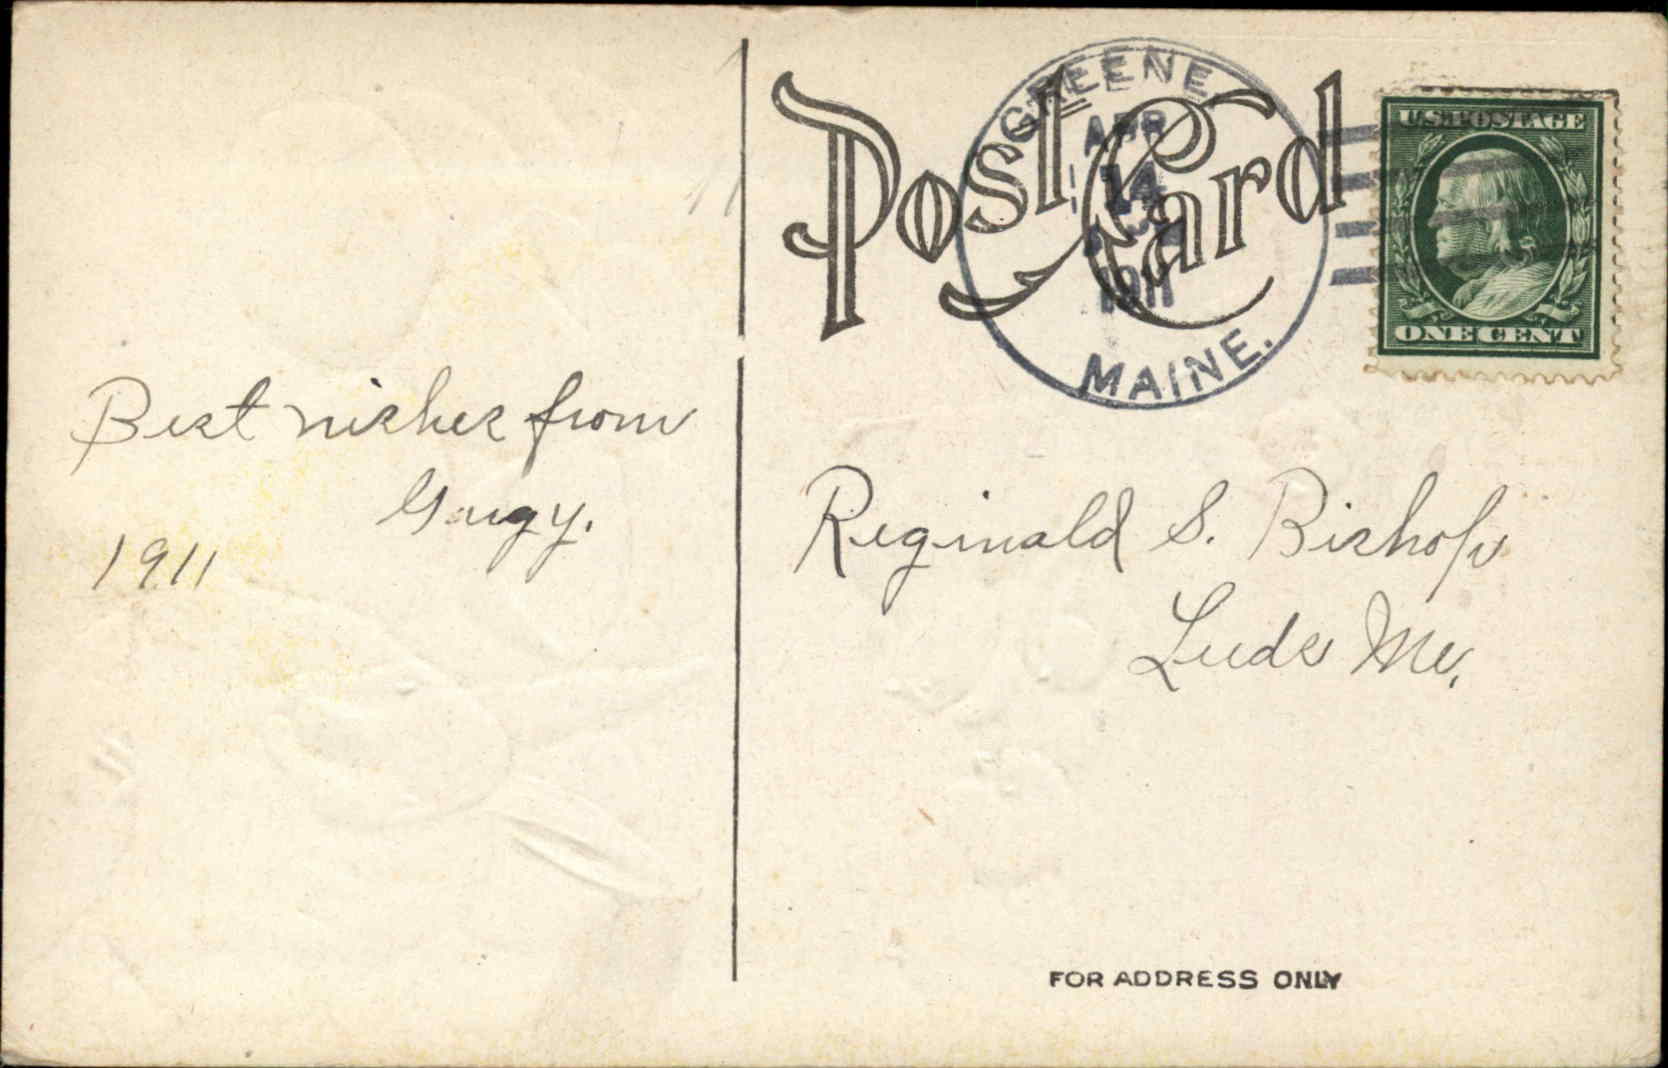 Best wishes from
1911
Post Card
GREENE
APR
14
1911
MAINE.
U.S. POSTAGE
ONE CENT
Reginald S. Bishop
Leeds Me.
FOR ADDRESS ONLY